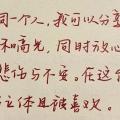 同一个人，我可以分享
不高光，同时放心
悲伤与不安。在这个
立体且被喜欢。